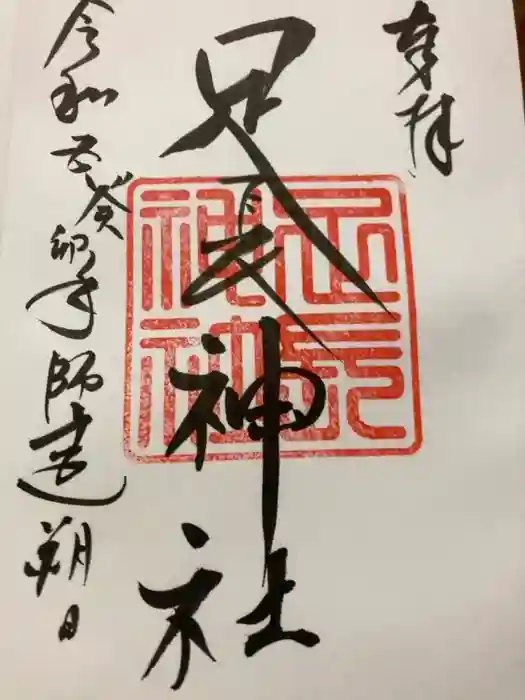 奉拝
足長神社
足長神社
令和五癸卯年師走朔日